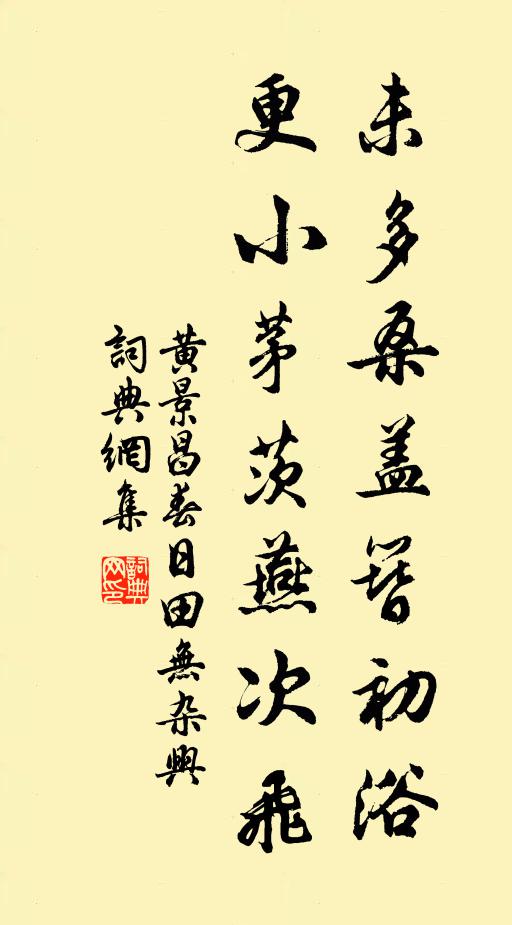 未多桑盖朁初浴
更小茅茨燕次飛
黃景昌春日田無杂興
詞典網集
詞典网印